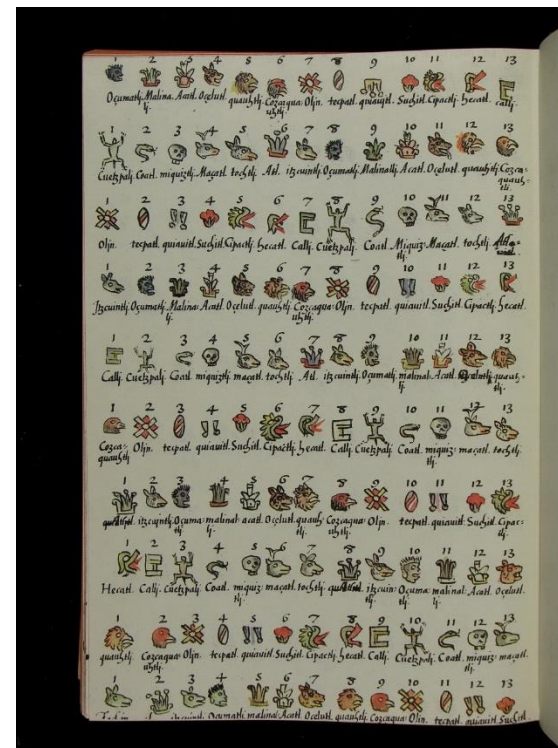 1 2 3 4 5 6 7 8 9 10 11 12 13
Oçumatlj. Malina- Acatl. Oçelutl. quauhtlj. Cozcaqua- Oljn. tecpatl. quiauitl. Suchitl. Cipactlj. hecatl. Callj.
lj. uhtlj.
1 2 3 4 5 6 7 8 9 10 11 12 13
Cuetzpalj. Coatl. miquiztlj. Maçatl. tochtlj. Atl. itzcuintlj. Oçumatlj. Malinallj. Acatl. Oçelutl. quauhtlj. Cozca-
quauh-
tlj.
1 2 3 4 5 6 7 8 9 10 11 12 13
Oljn. tecpatl. quiauitl. Suchitl. Cipactlj. hecatl. Callj. Cuetzpalj. Coatl. Miquiz- Maçatl. tochtlj.
tlj.
1 2 3 4 5 6 7 8 9 10 11 12 13
Jtzcuintlj. Oçumatlj. Malina- Acatl. Oçelutl. quauhtlj. Cozcaqua- Oljn. tecpatl. quiauitl. Suchitl. Cipactlj. hecatl.
lj. uhtlj.
1 2 3 4 5 6 7 8 9 10 11 12 13
Callj. Cuetzpalj. Coatl. miquiztlj. maçatl. tochtlj. Atl. itzcuintlj. Oçumatlj. malinal- Acatl. quauh-
lj. tlj.
1 2 3 4 5 6 7 8 9 10 11 12 13
Cozca- Oljn. tecpatl. quiauitl. Suchitl. Cipactlj. hecatl. Callj. Cuetzpalj. Coatl. miquiz- maçatl. tochtlj.
quauhtlj tlj.
1 2 3 4 5 6 7 8 9 10 11 12 13
itzcuintlj. Oçuma- malinal- acatl. Oçelutl. quauh- Cozcaqua- Oljn. tecpatl. quiauitl. Suchitl. Cipac-
tlj. lj. tlj. uhtlj. tlj.
1 2 3 4 5 6 7 8 9 10 11 12 13
Hecatl. Callj. Cuetzpalj. Coatl. miquiz- maçatl. tochtlj. itzcuin- Oçuma- malinal- Acatl. Oçelutl.
tlj. tlj. tlj. lj.
1 2 3 4 5 6 7 8 9 10 11 12 13
quauhtlj. Cozcaqua- Oljn. tecpatl. quiauitl. Suchitl. Cipactlj. hecatl. Callj. Cuetzpalj. Coatl. miquiz- maçatl.
uhtlj. tlj.
1 2 3 4 5 6 7 8 9 10 11 12 13
Oçumatlj. malinal- Acatl. Oçelutl. quauhtlj. Cozcaqua- Oljn. tecpatl. quiauitl. Suchitl.